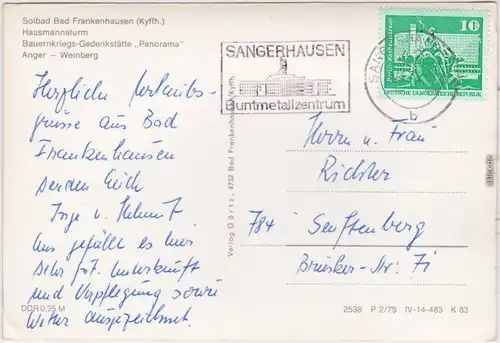 Solbad Bad Frankenhausen (Kyffh.)
Hausmannsturm
Bauernkriegs-Gedenkstätte „Panorama"
Anger – Weinberg
Herzliche Urlaubs-
grüsse aus Bad
Frankenhausen
senden Euch
Inge u. Helmut
Uns gefällt es hier
sehr gut. Unterkunft
und Verpflegung sowie
Wetter ausgezeichnet.
DDR 0,25 M
Verlag Dörtz, 4732 Bad Frankenhausen/Kyffh.
SANGERHAUSEN
Buntmetallzentrum
10
DEUTSCHE DEMOKRATISCHE REPUBLIK
b
Herrn u. Frau
Richter
784 Senftenberg
Briesker-Str. 71
2538 P 2/79 IV-14-483 K 83